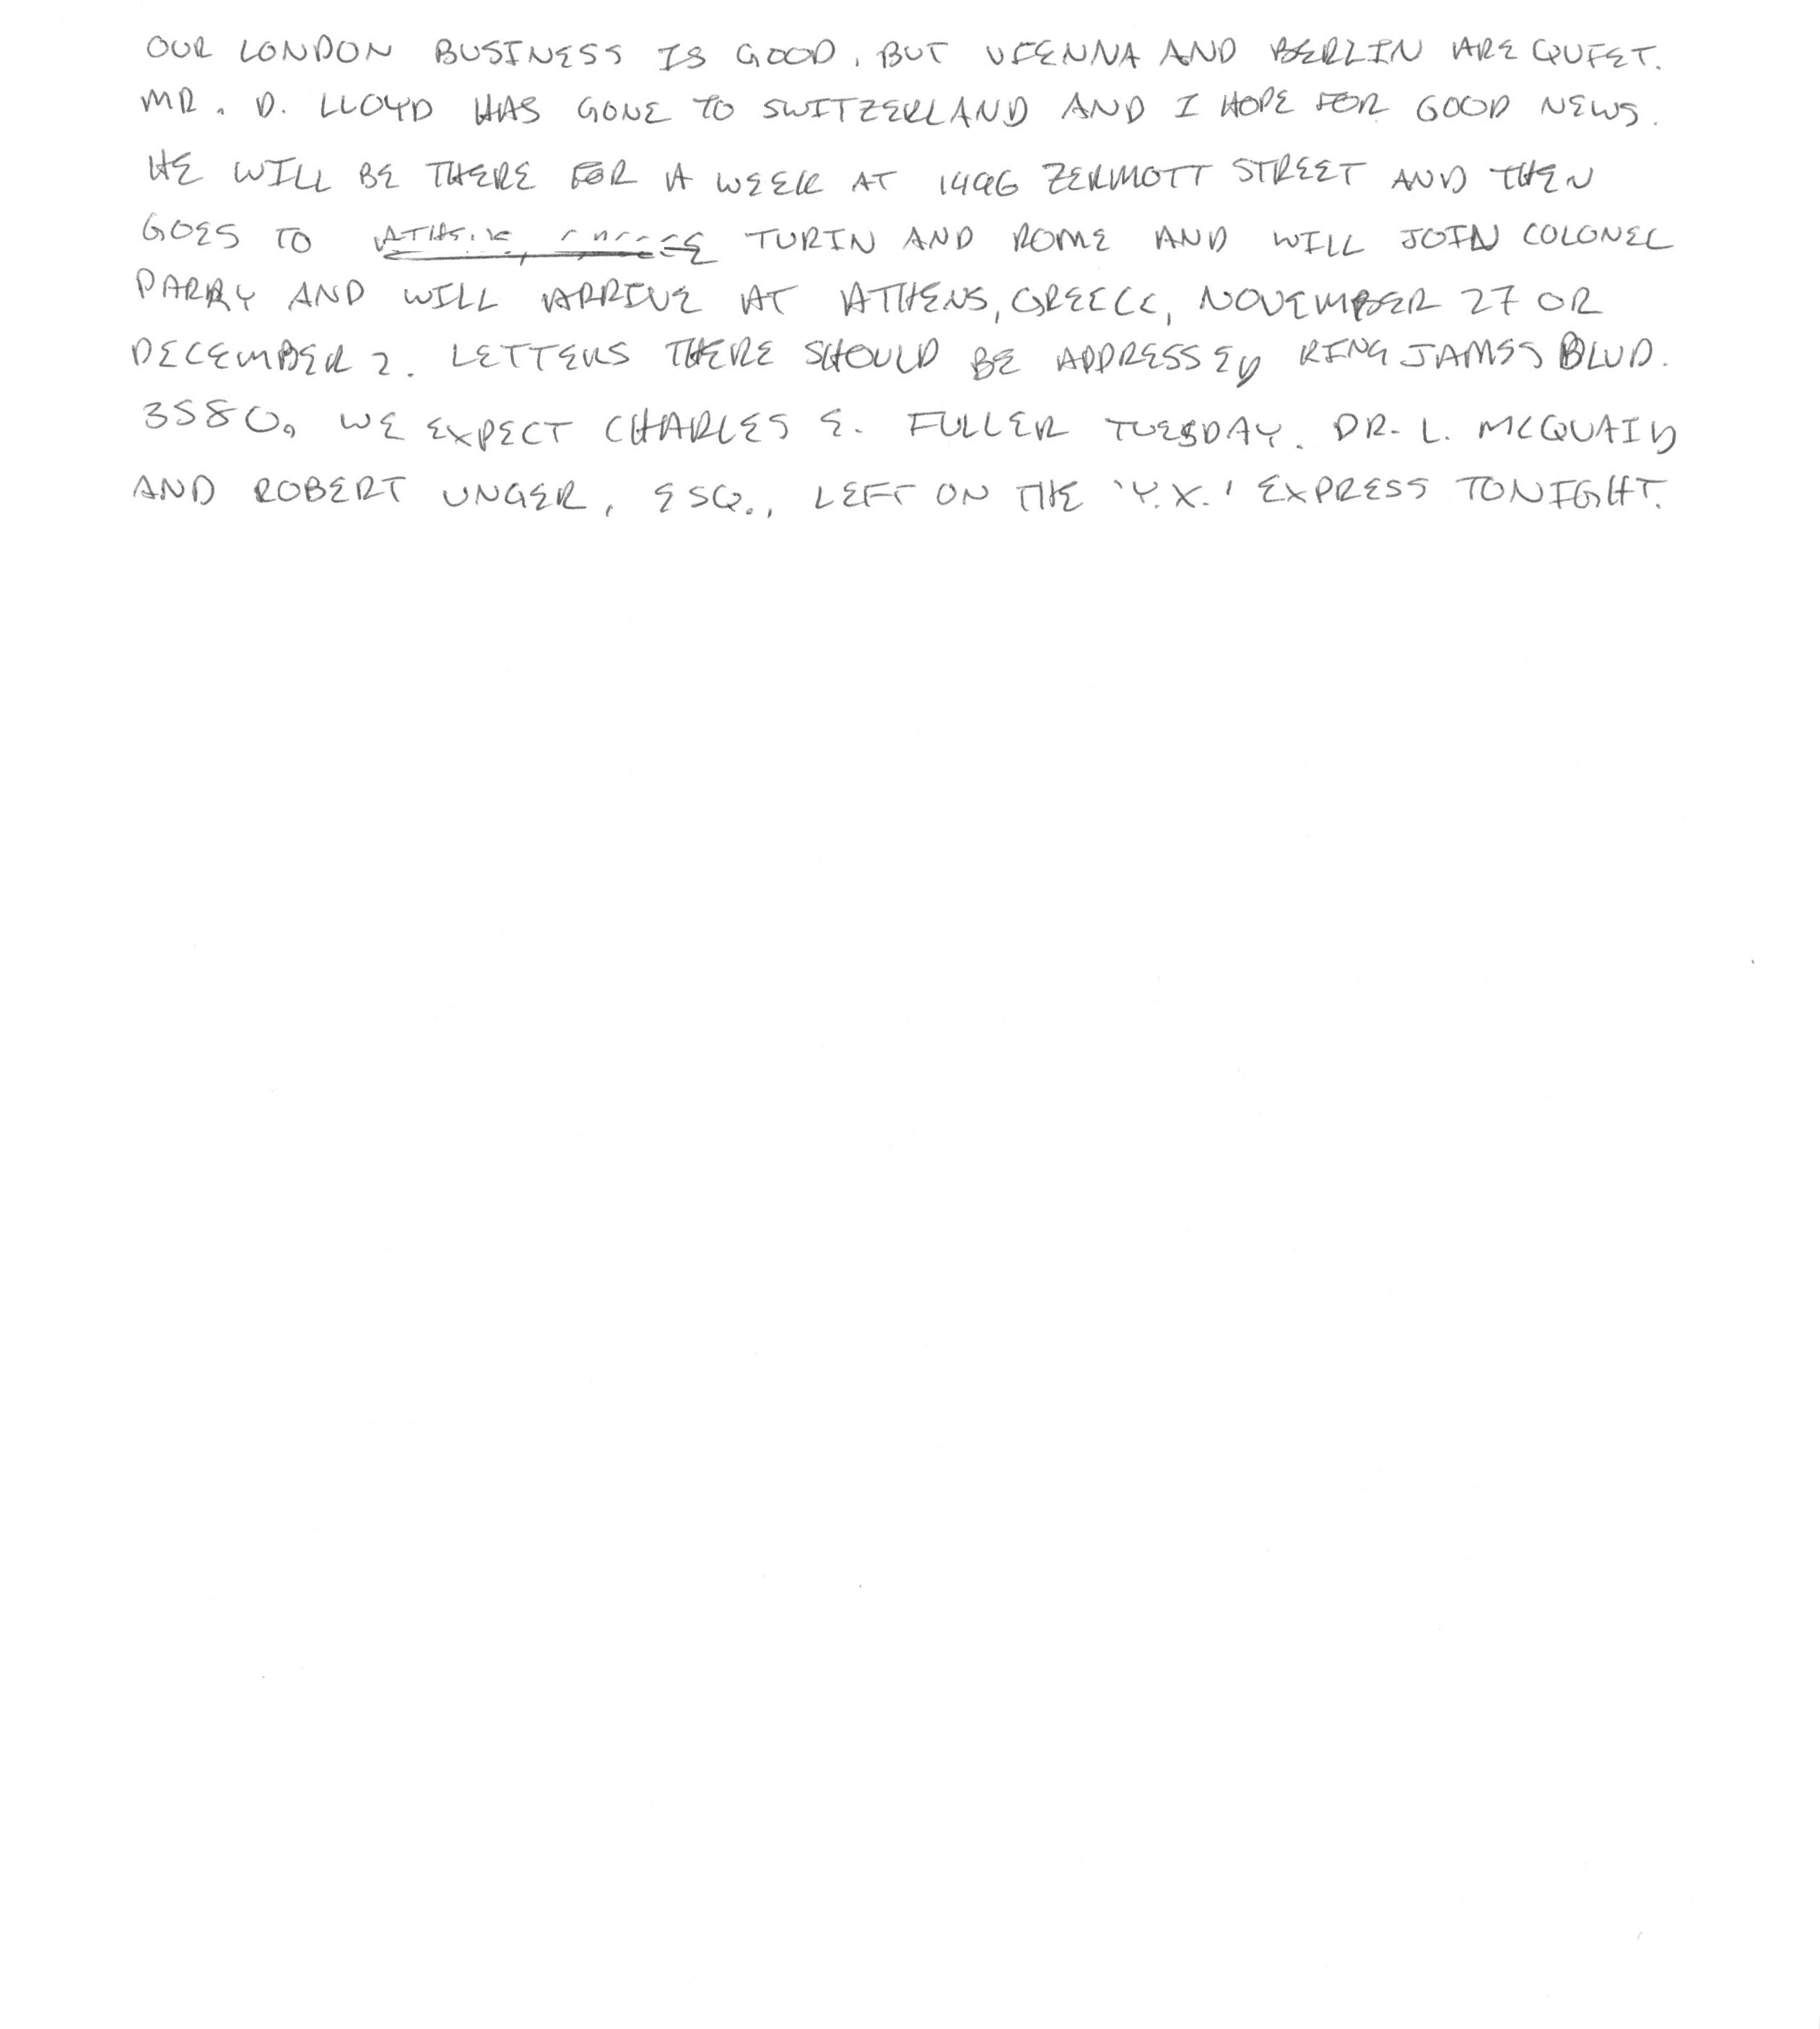 OUR LONDON BUSINESS IS GOOD, BUT VIENNA AND BERLIN ARE QUIET.
MR. D. LLOYD HAS GONE TO SWITZERLAND AND I HOPE FOR GOOD NEWS.
HE WILL BE THERE FOR A WEEK AT 1496 ZERMOTT STREET AND THEN
GOES TO TURIN AND ROME AND WILL JOIN COLONEL
PARRY AND WILL ARRIVE AT ATHENS, GREECE, NOVEMBER 27 OR
DECEMBER 2. LETTERS THERE SHOULD BE ADDRESSED KING JAMES BLVD.
3580. WE EXPECT CHARLES E. FULLER TUESDAY. DR. L. MCQUAID
AND ROBERT UNGER, ESQ., LEFT ON THE 'Y.X.' EXPRESS TONIGHT.